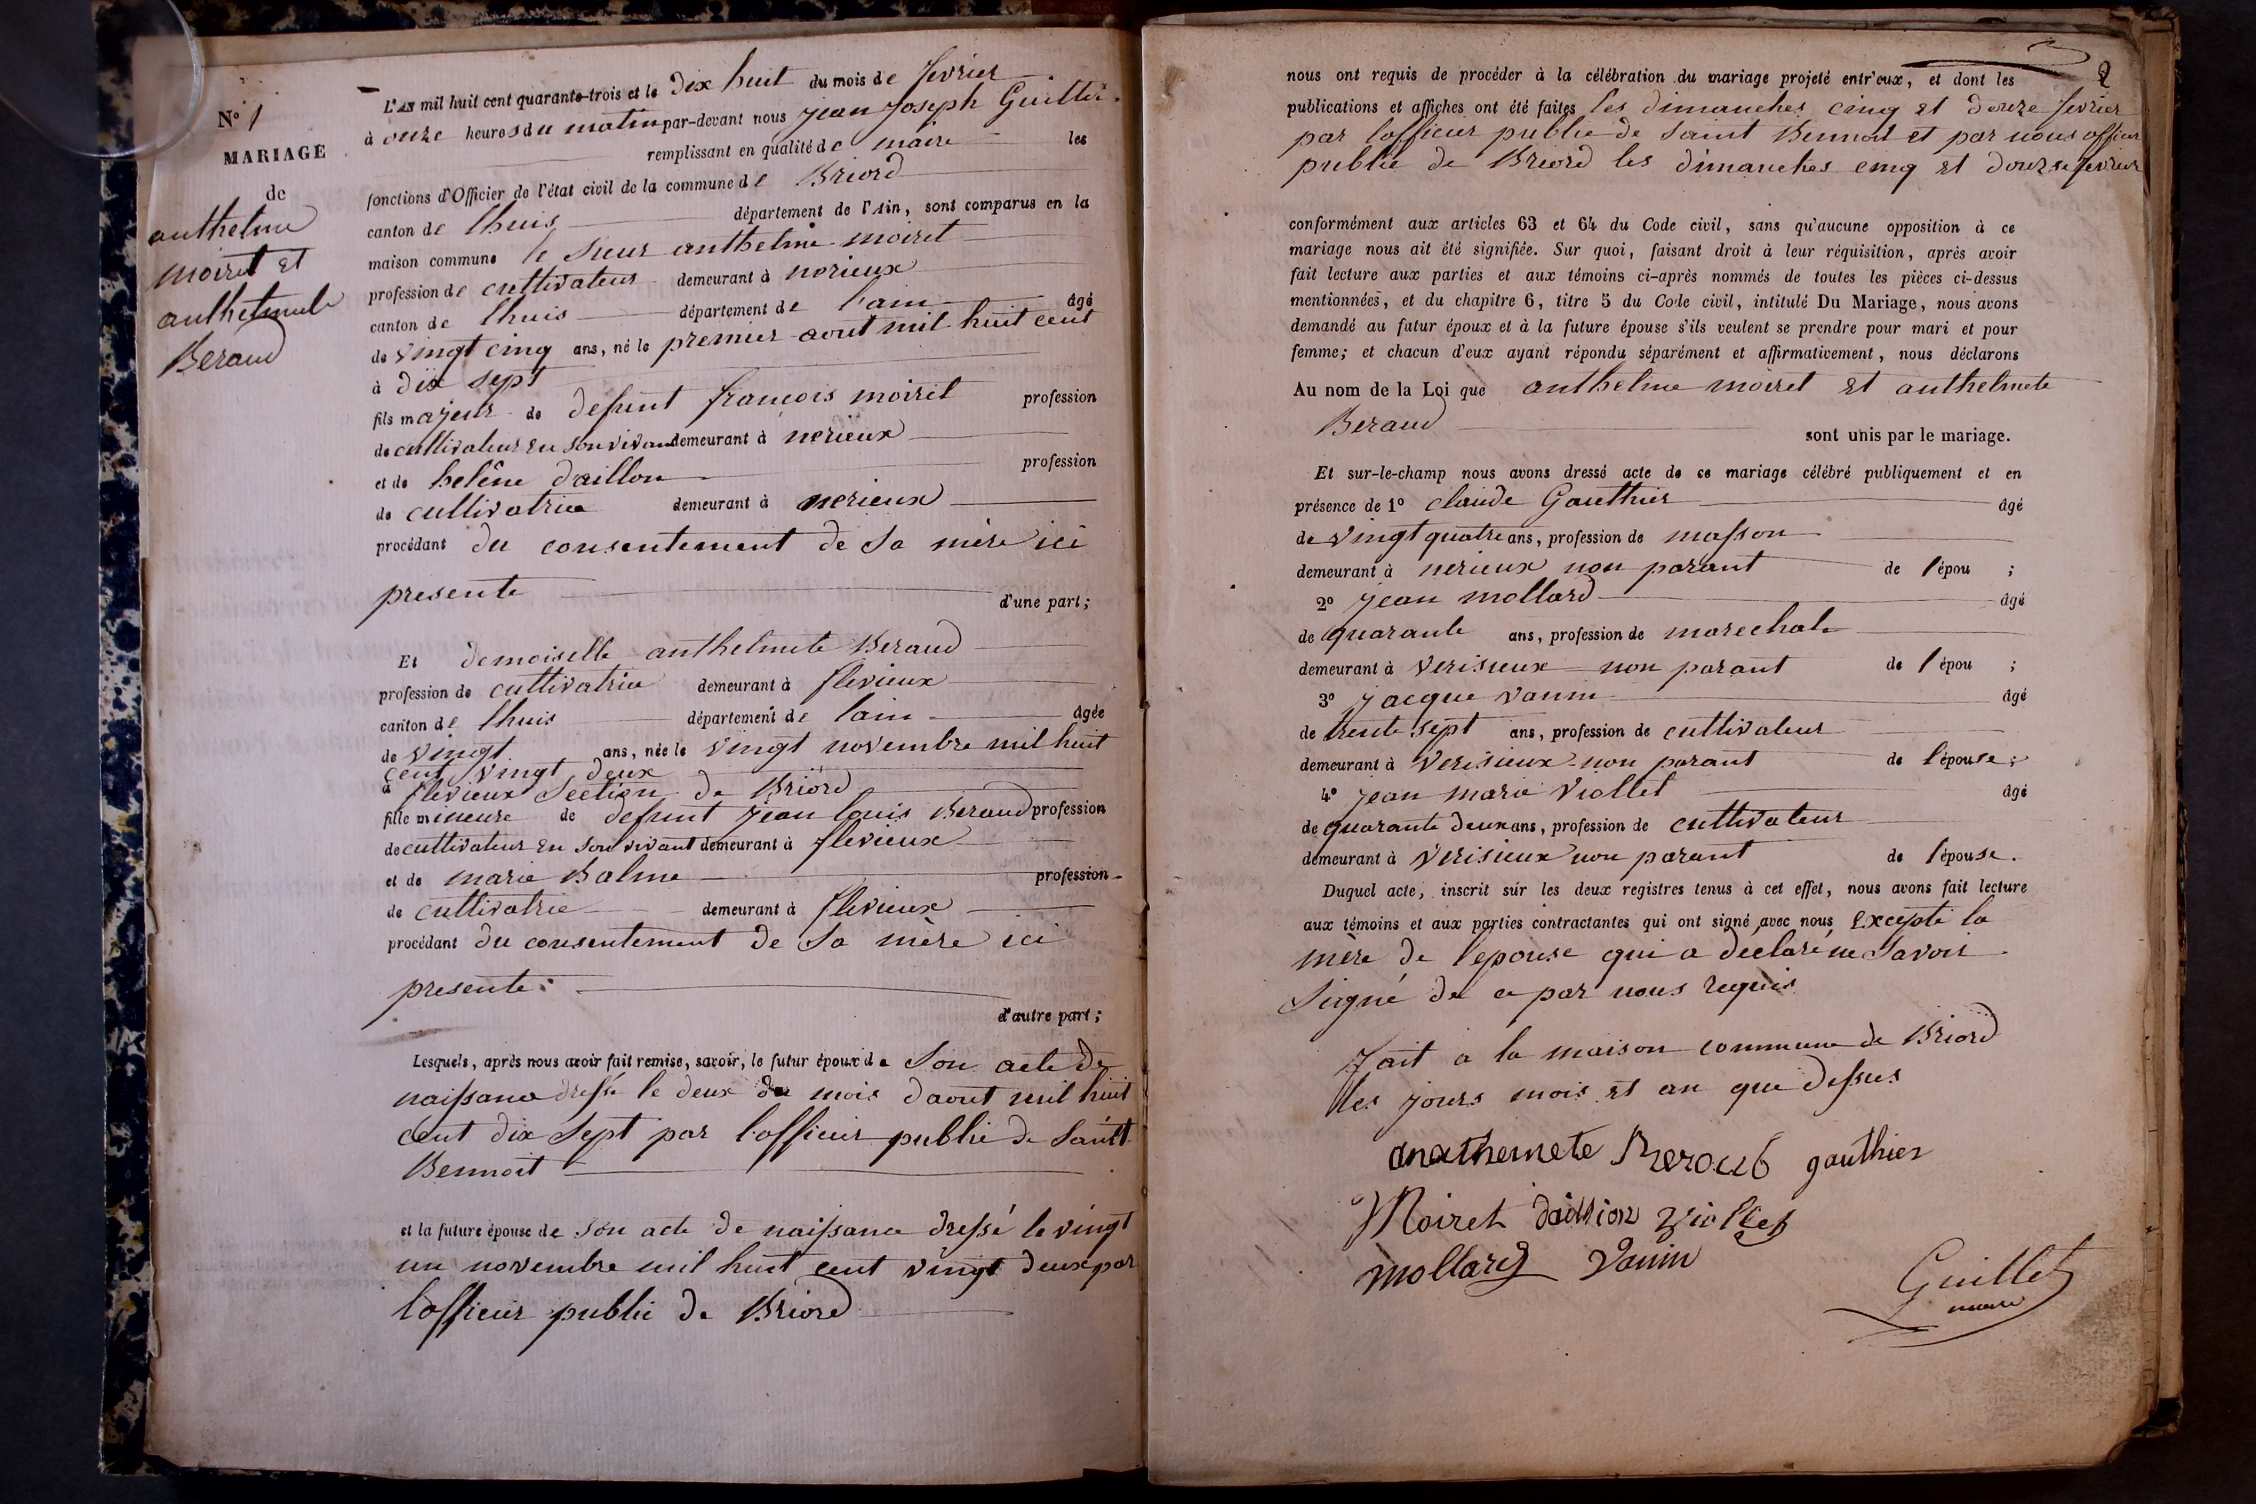 N° 1
MARIAGE
de
anthelme
moiret et
anthelmete
Beraud
L'AN mil huit cent quarante-trois et le dix huit du mois de fevrier
à onze heures du matin par-devant nous jean joseph Guillet
remplissant en qualité de maire les
fonctions d'Officier de l'état civil de la commune de Briord
canton de lhuis département de l'Ain, sont comparus en la
maison commune le sieur anthelme moiret
profession de cultivateur demeurant à nerieux
canton de lhuis département de l'ain âgé
de vingt cinq ans, né le premier aout mil huit cent
à dix sept
fils majeur de defunt françois moiret profession
de cultivateur en son vivant demeurant à nerieux
et de helêne daillon profession
de cultivatrice demeurant à nerieux
procédant du consentement de sa mère ici
presente d'une part;
Et demoiselle anthelmete Beraud
profession de cultivatrice demeurant à flevieux
canton de lhuis département de lain âgée
de vingt ans, née le vingt novembre mil huit
cent vingt deux
à flevieux section de Briord
fille mineure de defunt jean louis Beraud profession
de cultivateur en son vivant demeurant à flevieux
et de marie Balme profession
de cultivatrie demeurant à flevieux
procédant du consentement de sa mère ici
presente.
d'autre part;
Lesquels, après nous avoir fait remise, savoir, le futur époux de son acte de
naissance dressé le deux du mois daout mil huit
cent dix sept par l'officier public de saint
Bennoit
et la future épouse de son acte de naissance dressé le vingt
un novembre mil huit cent vingt deux par
l'officier public de Briord
2
nous ont requis de procéder à la célébration du mariage projeté entr'eux, et dont les
publications et affiches ont été faites les dimanches cinq et douze fevrier
par lofficier public de saint Bennoit et par nous officier
public de Briord les dimanches cinq et douze fevrier
conformément aux articles 63 et 64 du Code civil, sans qu'aucune opposition à ce
mariage nous ait été signifiée. Sur quoi, faisant droit à leur réquisition, après avoir
fait lecture aux parties et aux témoins ci-après nommés de toutes les pièces ci-dessus
mentionnées, et du chapitre 6, titre 5 du Code civil, intitulé Du Mariage, nous avons
demandé au futur époux et à la future épouse s'ils veulent se prendre pour mari et pour
femme; et chacun d'eux ayant répondu séparément et affirmativement, nous déclarons
Au nom de la Loi que anthelme moiret et anthelmete
Beraud sont unis par le mariage.
Et sur-le-champ nous avons dressé acte de ce mariage célébré publiquement et en
présence de 1° claude Gauthier âgé
de vingt quatre ans, profession de masson
demeurant à nerieux non parant de l'épou ;
2° jean mollard âgé
de quarante ans, profession de marechale
demeurant à verisieux non parant de l'épou ;
3° jacque vanin âgé
de trente sept ans, profession de cultivateur
demeurant à Verisieux non parant de l'épouse ;
4° jean marie Viollet âgé
de quarante deux ans, profession de cultivateur
demeurant à Verisieux non parant de l'épouse.
Duquel acte, inscrit sur les deux registres tenus à cet effet, nous avons fait lecture
aux témoins et aux parties contractantes qui ont signé avec nous excepté la
mère de l'epouse qui a declaré ne savoir
signé de ce par nous requis
fait a la maison commune de Briord
les jours mois et an que dessus
anathemete Beroud gauthier
Moiret daillion viollet
mollard Vanin
Guillet
maire